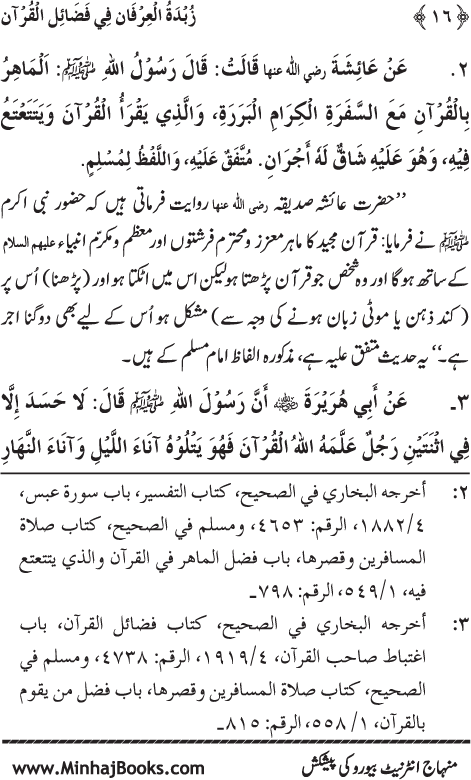 ﴿١٦﴾ زُبْدَةُ الْعِرْفَان فِي فَضَائِلِ الْقُرْآن
٢. عَنْ عَائِشَةَ رضی الله عنها قَالَتْ: قَالَ رَسُوْلُ اللهِ ﷺ: اَلْمَاهِرُ
بِالْقُرْآنِ مَعَ السَّفَرَةِ الْكِرَامِ الْبَرَرَةِ، وَالَّذِي يَقْرَأُ الْقُرْآنَ وَيَتَتَعْتَعُ
فِيْهِ، وَهُوَ عَلَيْهِ شَاقٌّ لَهُ أَجْرَانِ. مُتَّفَقٌ عَلَيْهِ، وَاللَّفْظُ لِمُسْلِمٍ.
’’حضرت عائشہ صدیقہ رضی الله عنها روایت فرماتی ہیں کہ حضور نبی اکرم
ﷺ نے فرمایا: قرآن مجید کا ماہر معزز و محترم فرشتوں اور معظم و مکرّم انبیاء علیهم السلام
کے ساتھ ہو گا اور وہ شخص جو قرآن پڑھتا ہو لیکن اس میں اٹکتا ہو اور (پڑھنا) اُس پر
(کند ذہن یا موٹی زبان ہونے کی وجہ سے) مشکل ہو اُس کے لیے بھی دوگنا اجر
ہے۔‘‘ یہ حدیث متفق علیہ ہے، مذکورہ الفاظ امام مسلم کے ہیں۔
٣۔ عَنْ أَبِي هُرَيْرَةَ رضی الله عنه أَنَّ رَسُوْلَ اللهِ ﷺ قَالَ: لَا حَسَدَ إِلَّا
فِي اثْنَتَيْنِ رَجُلٌ عَلَّمَهُ اللهُ الْقُرْآنَ فَهُوَ يَتْلُوْهُ آنَاءَ اللَّيْلِ وَآنَاءَ النَّهَارِ
٢: أخرجه البخاري في الصحيح، كتاب التفسير، باب سورة عبس،
٤/١٨٨٢، الرقم: ٤٦٥٣، ومسلم في الصحيح، كتاب صلاة
المسافرين وقصرها، باب فضل الماهر في القرآن والذي يتتعتع
فيه، ١/٥٤٩، الرقم: ٧٩٨۔
٣: أخرجه البخاري في الصحيح، كتاب فضائل القرآن، باب
اغتباط صاحب القرآن، ٤/١٩١٩، الرقم: ٤٧٣٨، ومسلم في
الصحيح، كتاب صلاة المسافرين وقصرها، باب فضل من يقوم
بالقرآن، ١/٥٥٨، الرقم: ٨١٥۔
منہاج انٹرنیٹ بیورو کی پیشکش www.MinhajBooks.com